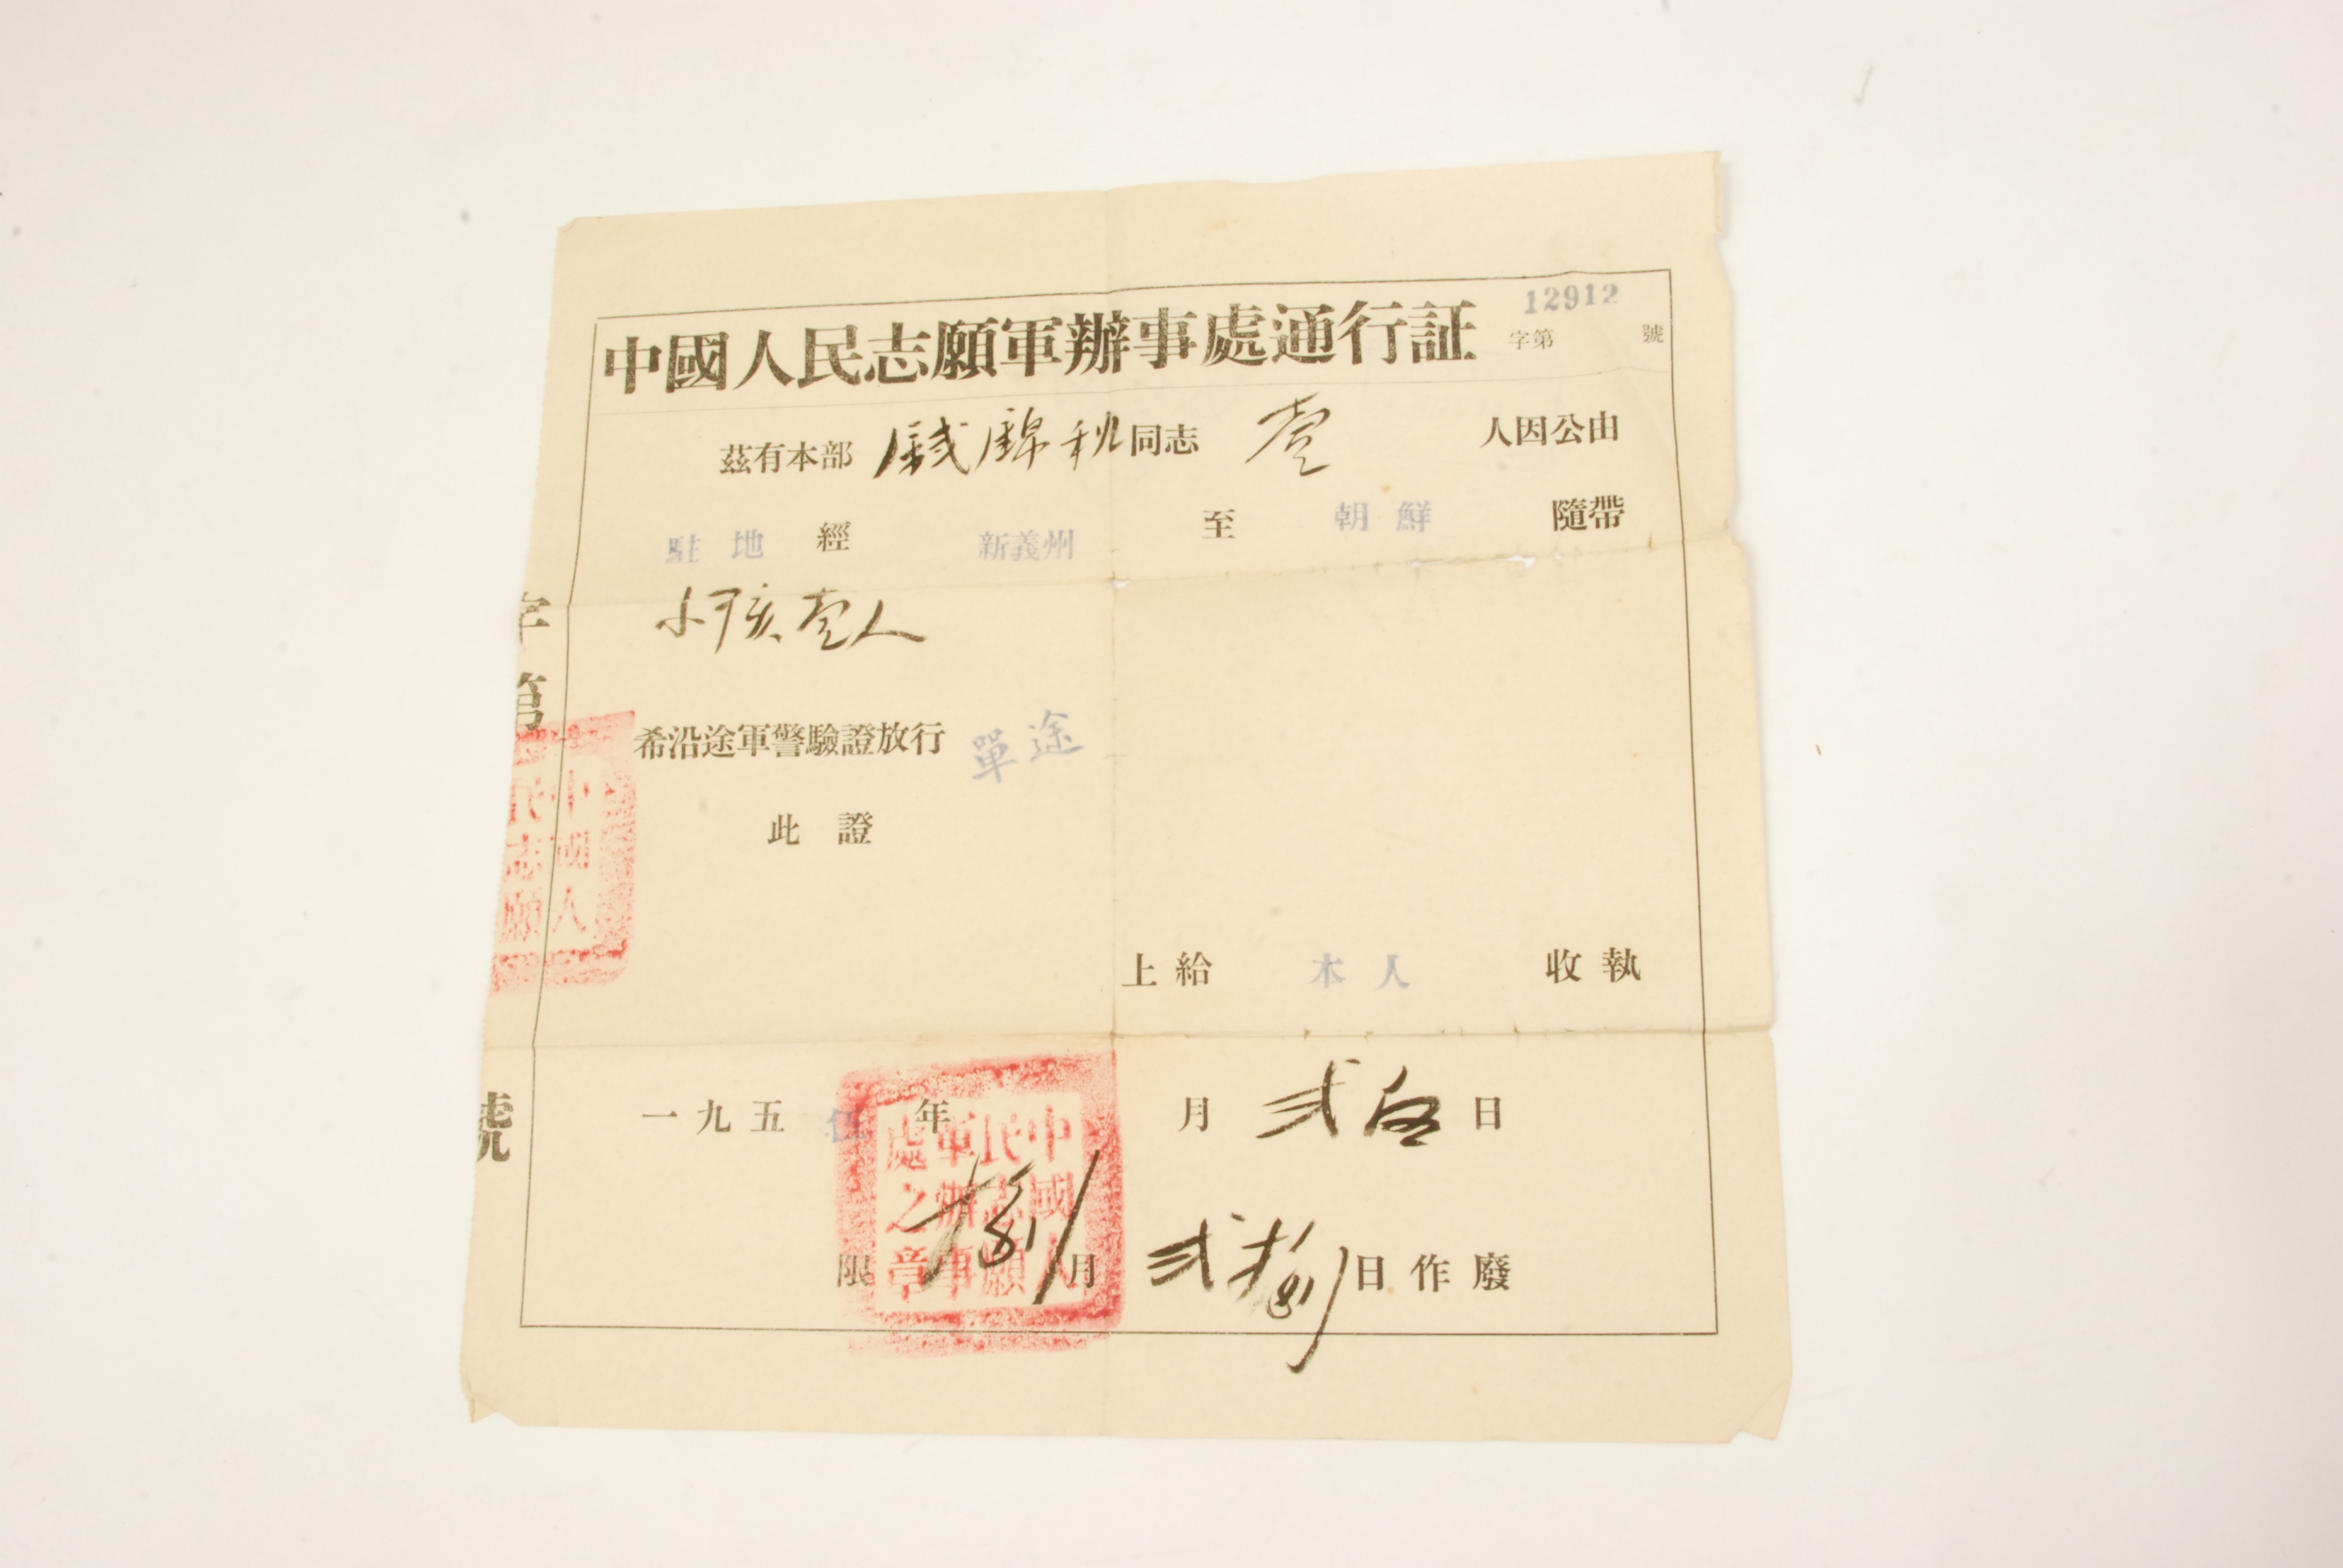 12912
中國人民志願軍辦事處通行証 字第 號
茲有本部 戚錦秋 同志 壹 人因公由
駐地 經 新義州 至 朝鮮 隨帶
小孩壹人
希沿途軍警驗證放行 單途
此證
上給 本人 收執
一九五伍年 月 日
限 月 日作廢
字第 號
中國人民志願
中國人民志願軍辦事處之章